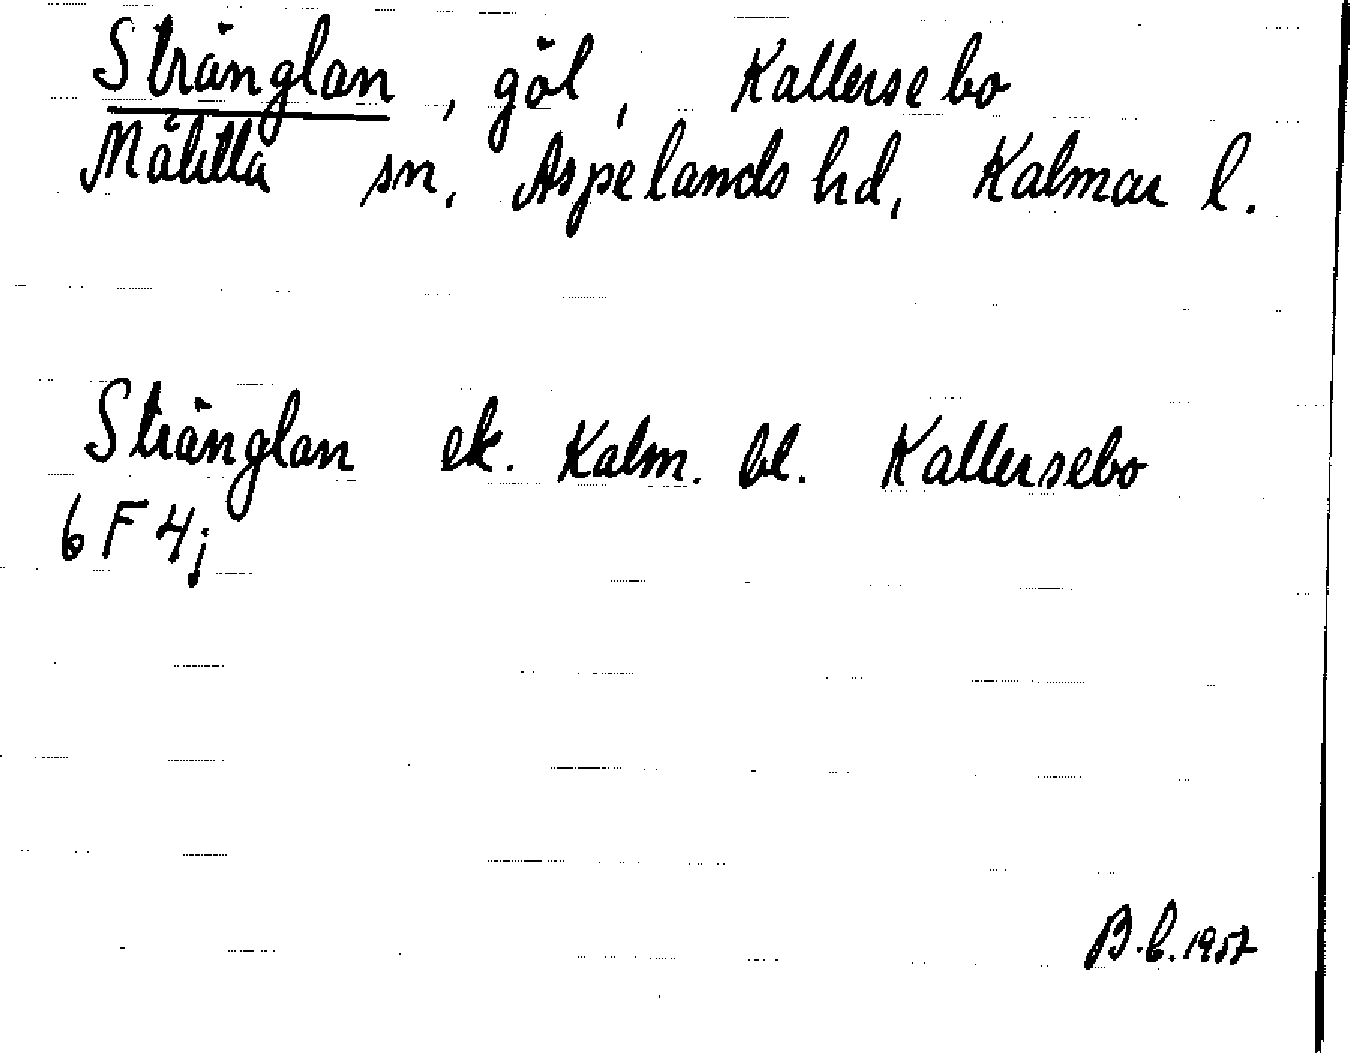 Stränglan, göl, Kallersebo
Målilla sn, Aspelands hd, Kalmar l.
Stränglan ek. Kalm. bl. Kallersebo
6 F 4j
B.b. 1957